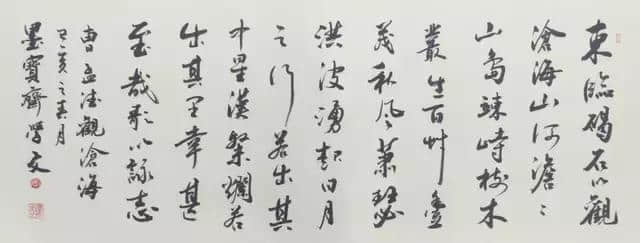 東臨碣石以觀
滄海山河澹々
山島竦峙樹木
叢生百艸豐
茂秋風蕭瑟
洪波湧起日月
之行若出其
中星漢粲爛若
出其里幸甚
至哉歌以詠志
曹孟德觀滄海
己亥之春月
墨寶齋学文